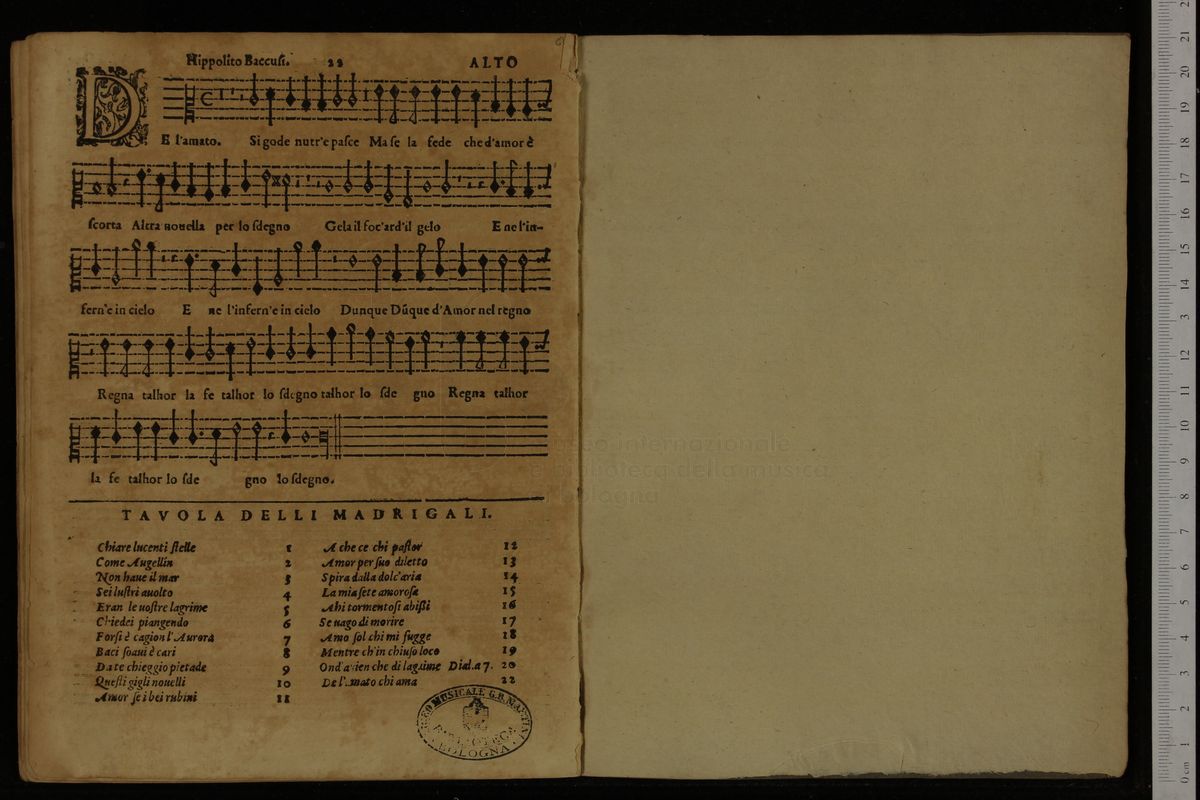 Hippolito Baccusi. 22 ALTO
DE l'amato. Si gode nutr'e pasce Ma se la fede che d'amor è
scorta Altra nouella per lo sdegno Gela il foc'ard'il gelo E ne l'in-
fern'e in cielo E ne l'infern'e in cielo Dunque Dũque d'Amor nel regno
Regna talhor la fe talhor lo sdegno talhor lo sde gno Regna talhor
la fe talhor lo sde gno lo sdegno.
TAVOLA DELLI MADRIGALI.
Chiare lucenti stelle 1
Come Augellin 2
Non haue il mar 3
Sei lustri auolto 4
Eran le uostre lagrime 5
Chiedei piangendo 6
Forsi è cagion l'Aurora 7
Baci soaui è cari 8
Da te chieggio pietade 9
Questi gigli nouelli 10
Amor se i bei rubini 11
A che ce chi pastor 12
Amor per suo diletto 13
Spira dalla dolc'aria 14
La mia sete amorosa 15
Ahi tormentosi abissi 16
Se uago di morire 17
Amo sol chi mi fugge 18
Mentre ch'in chiuso loco 19
Ond'auien che di lagrime Dial. a 7. 20
De l'amato chi ama 22
LICEO MUSICALE G.B. MARTINI
BIBLIOTECA
BOLOGNA
museo internazionale
e biblioteca della musica
di bologna